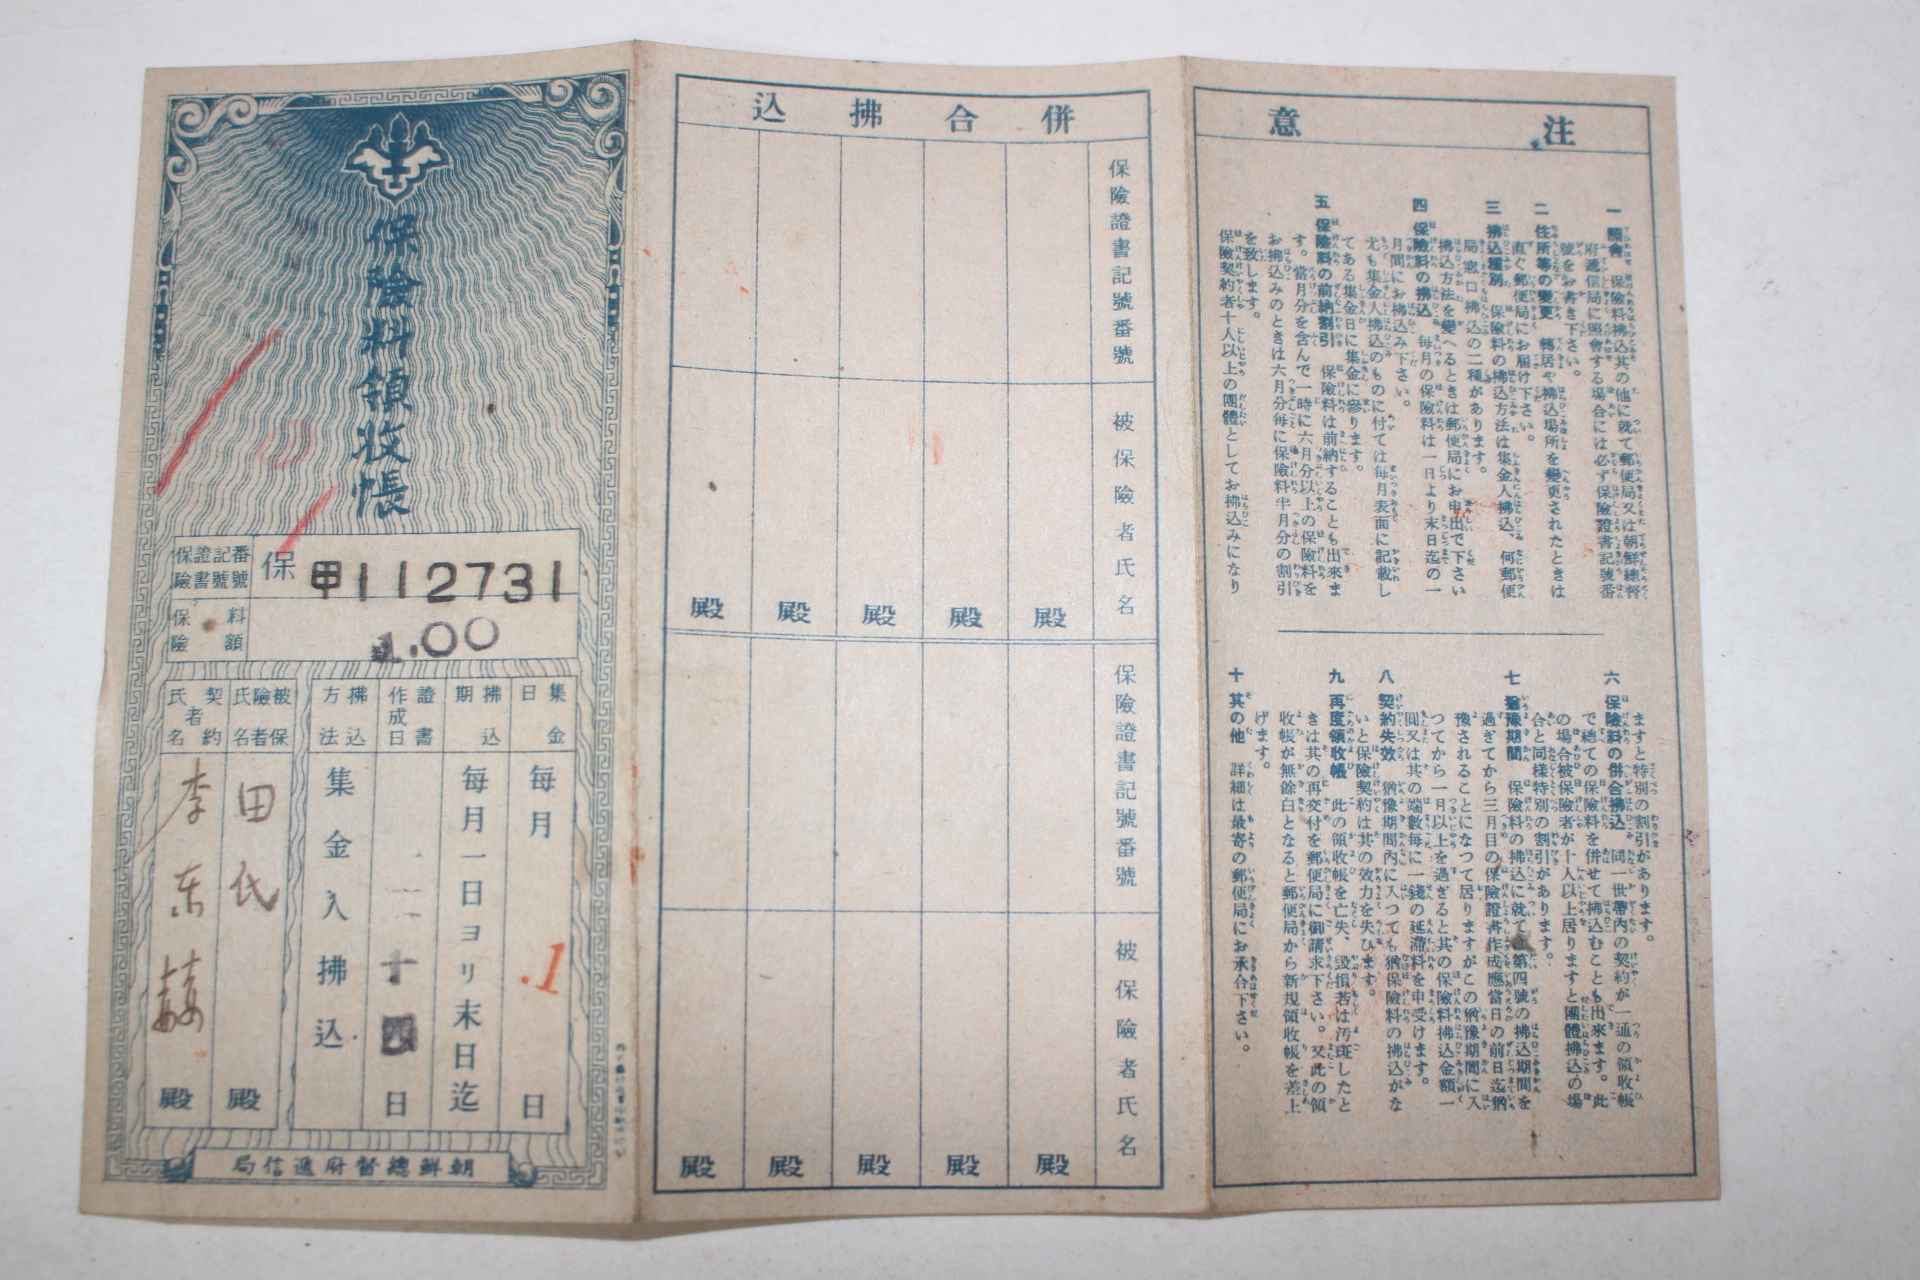 保險料領收帳
保險證書記號番號
保
甲112731
保險料額
1.00
集金日
毎月
.1
日
拂込期
毎月一日ヨリ末日迄
證書作成日
十四
日
拂込方法
集金人拂込
被保險者氏名
田氏
殿
契約者氏名
李東
殿
朝鮮總督府遞信局
併合拂込
保險證書記號番號
被保險者氏名
殿
殿
殿
殿
殿
保險證書記號番號
被保險者氏名
殿
殿
殿
殿
殿
注意
一 照會 保險料拂込其の他に就て郵便局又は朝鮮總督
府遞信局に照會する場合には必ず保險證書記號番
號をお書き下さい。
二 住所等の變更 轉居や拂込場所を變更されたときは
直ぐ郵便局にお屆け下さい。
三 拂込種別 保險料の拂込方法は集金人拂込、何郵便
局窓口拂込の二種があります。
拂込方法を變へるときは郵便局にお申出で下さい
四 保險料の拂込 毎月の保險料は一日より末日迄の一
月間にお拂込み下さい。
尤も集金人拂込のものに付ては毎月表面に記載し
てある集金日に集金に參ります。
五 保險料の前納割引 保險料は前納することも出來ま
す。當月分を含んで一時に六月分以上の保險料を
お拂込みのときは六月分毎に保險料半月分の割引
を致します。
保險契約者十人以上の團體としてお拂込みになり
ますと特別の割引があります。
六 保險料の併合拂込 同一世帶內の契約が一通の領收帳
で總ての保險料を併せて拂込むことも出來ます。此
の場合被保險者が十人以上居りますと團體拂込の場
合と同樣特別の割引があります。
七 猶豫期間 保險料の拂込に就ては第四號の拂込期間を
過ぎてから三月目の保險證書作成應當日の前日迄猶
豫されることになつて居りますがこの猶豫期間に入
つてから一月以上を過ぎると其の保險料拂込金額一
圓又は其の端數毎に一錢の延滯料を申受けます。
八 契約失效 猶豫期間內に入つても猶保險料の拂込がな
いと保險契約は其の效力を失ひます。
九 再度領收帳 此の領收帳を亡失、毀損若は汚斑したと
きは其の再交付を郵便局に御請求下さい。又此の領
收帳が無餘白となると郵便局から新規領收帳を差上
げます。
十 其の他 詳細は最寄の郵便局にお承合下さい。